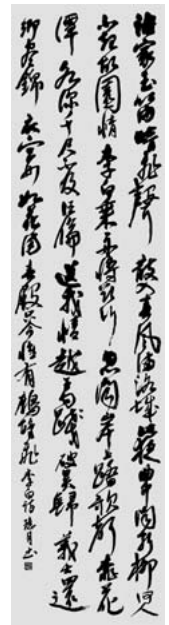 誰家玉笛暗飛聲 散入春風滿洛城 此夜曲中聞折柳 何人
不起故園情 李白乘舟將欲行 忽聞岸上踏歌聲 桃花
潭水深千尺 不及汪倫送我情 越王勾踐破吳歸 義士還
鄉盡錦衣 宮女如花滿春殿 只今惟有鷓鴣飛 李白詩